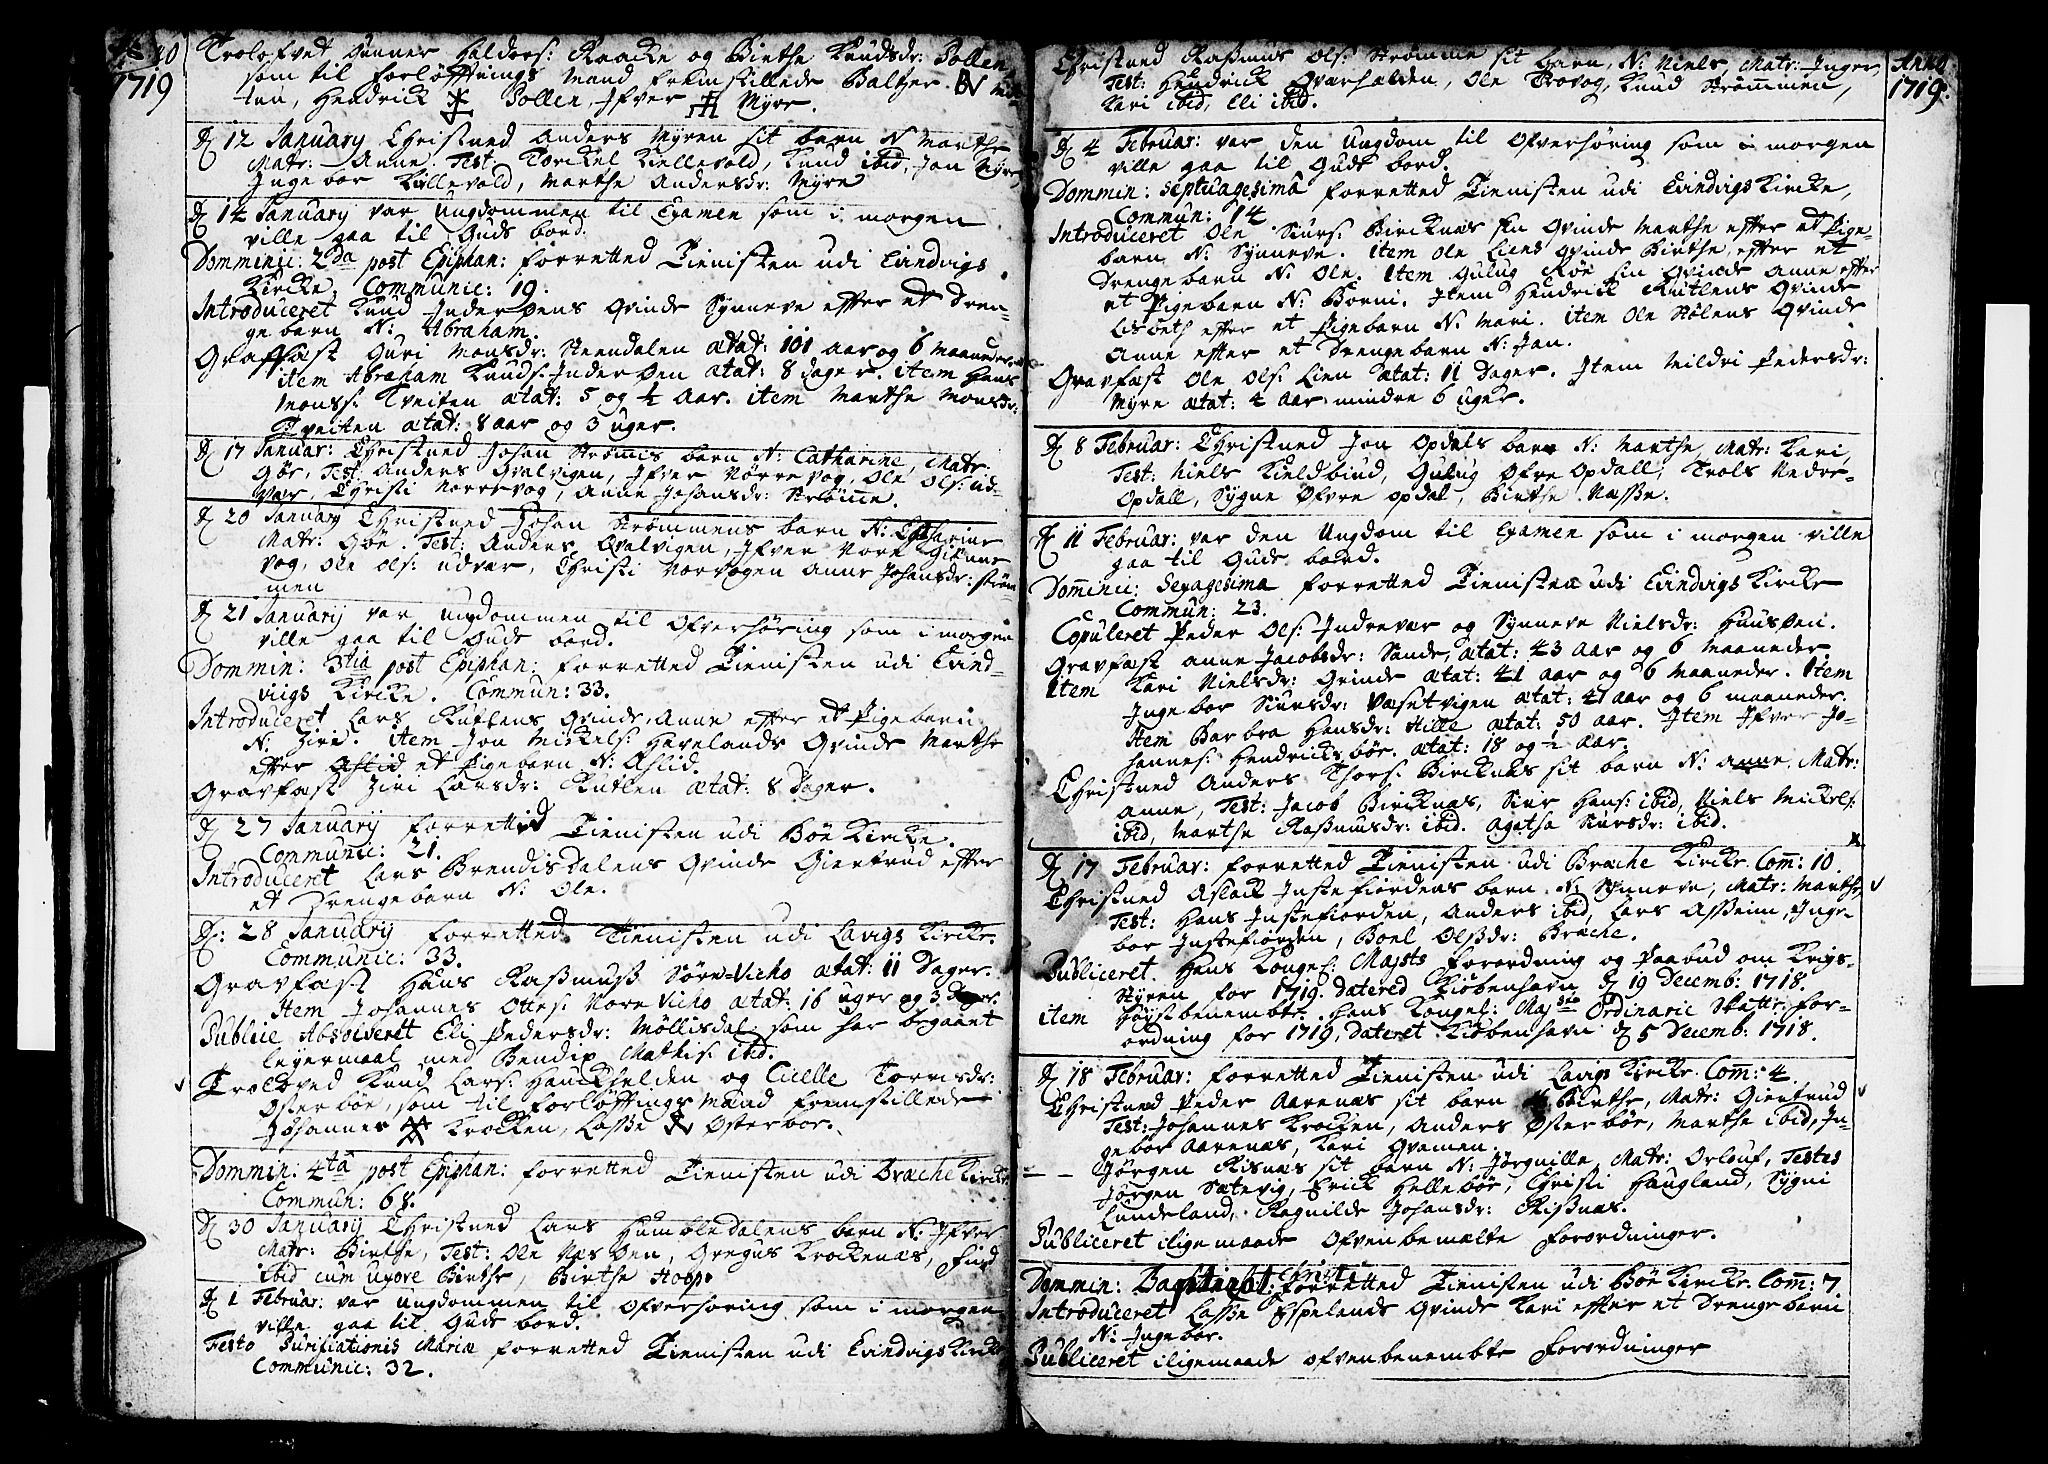 40
1719
Trolofvet Gunner Haldors: Raacke og Birthe Knudsdr: Pollen
som til forløfftnings mænd fremstillede Baltzer
tun, Hendrick Pollen, Ifver Myre.
D 12 January Christned Anders Myren sit barn N: Marthe
Matr: Anne. Test: Torckel Kellevold, Knud ibid, Jon Myre,
Ingebor Kellevold, Marthe Andersdr: Myre
D 14 January var Ungdommen til Examen som i morgen
ville gaa til Guds bord.
Dominic: 2da post Epiphan: forretted Tienisten udi Eindvigs
Kircke. Communic: 19.
Introduceret Knud Inderøens Qvinde Synneve effter et Dren-
gebarn N: Abraham.
Graffæst Guri Monsdr: Steendalen ætat: 101 aar og 6 maaneder
item Abraham Knuds: Inderøen ætat: 8 dager. item Hans
Monss: Tveiten ætat: 5 og ½ Aar. item Marthe Monsdr:
Tveiten ætat: 8 aar og 3 uger.
D 17 Januar: Christned Johan Strømmis barn N: Catharine, Matr:
Gøe, Test: Anders Qvalvigen, Ifver Nørrevog, Ole Ols: Ud-
vær, Christi Norrevog, Anne Johansdr: Strømme.
D 20 January Christned Johan Strømmens barn N: Catharine
Matr: Gøe. Test: Anders Qvalvigen, Ifver Nore
vog, Ole Ols: Udvær, Christi Norvogen Anne Johansdr: Strøm
men
D 21 January var Ungdommen til Ofverhøring som i morgen
ville gaa til Guds bord.
Dommin: 3tia post Epiphan: forretted Tienisten udi Eind-
viigs Kircke. Commun: 33.
Introduceret Lars Rutlens Qvinde Anne effter et Pigebarn
N: Ziri. item Jon Mickels: Havelands Qvinde Marthe
effter et Pigebarn N: Aslid.
Gravfæst Ziri Larsdr: Rutlen ætat: 8 Dager.
D 27 January forretted Tienisten udi Bøe Kircke.
Communic: 21.
Introduceret Lars Brendisdalens Qvinde Giertrud effter
et Drengebarn N: Ole.
D: 28 January forretted Tienisten udi Lavigs Kircke.
Communic: 33.
Gravfæst Hans Rasmuss Søre-Vicho ætat: 11 Dager.
Item Johannes Ottes: Nore Vicho ætat: 16 uger og 3 dager.
Publice Absolverett Eli Pedersdr: Møllisdal som har begaaet
leyermaal med Bendix Mathis: ibid.
Troloved Knud Lars: Hauckhelden og Cicelle Torrisdr:
Osterbøe, som til forløfftnings Mænd fremstillede
Johannes Krocken, Lasse Osterboe.
Dommin: 4ta post Epiphan: forretted Tienisten udi Bræche Kircke
Commun: 68.
D 30 January Christned Lars Humbledalens barn N: Ifver
Matr: Birthe, Test: Ole Næsøen, Gregus Krockenæs, Find
ibid cum uxore Birthe, Birthe Hoop.
D 1 Februar: var Ungdommen til Ofverhøring som i morgen
ville gaa til Guds bord.
Festo Purificationis Mariæ forretted Tienisten udi Eindvigs Kircke
Communic: 32.
Anno
1719.
Christned Rasmus Ols: Strømme sit barn, N: Niels, Matr: Inger,
Test: Hendrick Qværhælden, Ole Provog, Knud Strømmen,
Kari ibid, Eli ibid.
D 4 Februar: var den Ungdom til Ofverhøring som i morgen
ville gaa til Guds bord.
Dommin: Septuagesima forretted Tienisten udi Eindvigs Kircke,
Commun: 14
Introduceret Ole Siurs: Bircknæs sin Qvinde Marthe effter et Pige-
barn N: Synneve. item Ole Liens Qvinde Birthe effter et
Drengebarn N: Ole. Item Gulug Røe sin Qvinde Anne effter
et Pigebarn N: Borni. Item Hendrick Rutlens Qvinde
Lisbeth effter et Pigebarn N: Mari. item Ole Stølens Qvinde
Anne effter et Drengebarn N: Jan.
Gravfæst Ole Ols: Lien ætat: 11 Dager. Item Mildri Pedersdr:
Myre ætat: 4 Aar mindre 6 uger.
D 8 Februar: Christned Jon Opdals barn N: Marthe, Matr: Kari,
Test: Niels Kieldbiud, Gulug Øfre Opdall, Trols Nedre-
Opdall, Sygne Øfre Opdal, Birthe Næsse.
D 11 Februar: var den Ungdom til Examen som i morgen ville
gaa til Guds bord.
Dominic: Sexagesima forretted Tienisten udi Eindvigs Kircke
Commun: 23.
Copuleret Peder Ols: Indrevær og Synneve Nielsdr: Huusøen.
Gravfæst Anne Jacobsdr: Sande, ætat: 43 aar og 6 maaneder
Item Kari Nielsdr: Grinde ætat: 41 aar og 6 maaneder. Item
Ingebor Siursdr: Væsetvigen ætat: 41 aar og 6 maaneder.
Item Barbra Hansdr: Hille ætat: 50 aar. Item Ifver Jo-
hannes: Hendricksbøe. ætat: 18 og ½ Aar.
Christned Anders Thors: Bircknæs sit barn N: Anne, Matr:
Anne, Test: Jacob Bircknæs, Siur Hans: ibid, Niels Mickels:
ibid, Marthe Rasmusdr: ibid. Agatha Siursdr: ibid.
D 17 Februar: forretted Tienisten udi Bræche Kircke. Com: 10.
Christned Aslack Instefiordens barn N: Synneve, Matr: Marthe,
Test: Hans Instefiorden, Anders ibid, Lars Asseim, Inge-
bor Instefiorden, Boel Olssdr: Bræche.
Publiceret Hans Kongel: Majsts Forordning og Paabud om Krigs-
Styren for 1719. Datered Kiøbenhavn D 19 Decemb: 1718.
item høystbenembte. Hans Kongel: Majsts Ordinarie Skatte-For-
ordning for 1719, dateret Kiøbenhavn D 5 Decemb: 1718.
D 18 Februar: forretted Tienisten udi Lavigs Kircke. Com: 4.
Christned Peder Aarenæs sit barn N: Birthe, Matr: Giertrud
Test: Johannes Krocken, Anders Østerbøe, Marthe ibid, In-
gebor Aarenæs, Kari Qvamen.
— — Jørgen Risnæs sit barn N: Jørgnille, Matr: Orlouf, Testes
Jørgen Sætevig, Erick Hellebøe, Christi Haugland, Sygni
Lundeland, Ragnilde Johansdr: Risnæs.
Publiceret iligemaade Ofvenbemælte Forordninger.
Dommin: Christi forretted Tienisten udi Bøe Kircke. Com: 7.
Introduceret Lasse Espelands Qvinde Kari effter et Drengebarn
N: Ingebor.
Publiceret iligemaade ofvenbenembte Forordninger